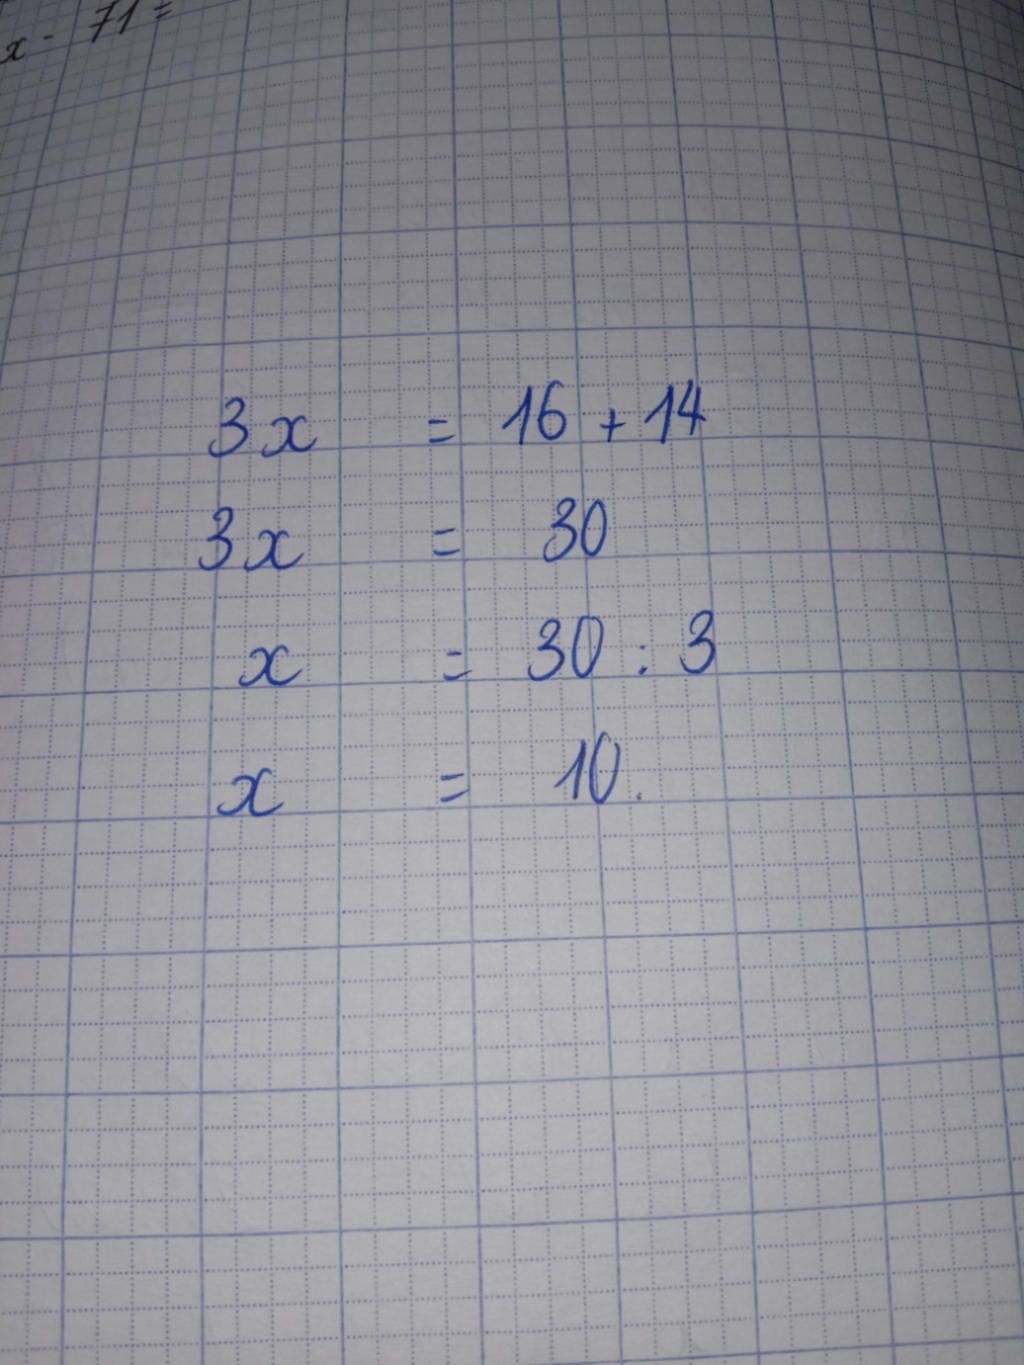 x - 71 =
3x = 16 + 14
3x = 30
x = 30 : 3
x = 10.